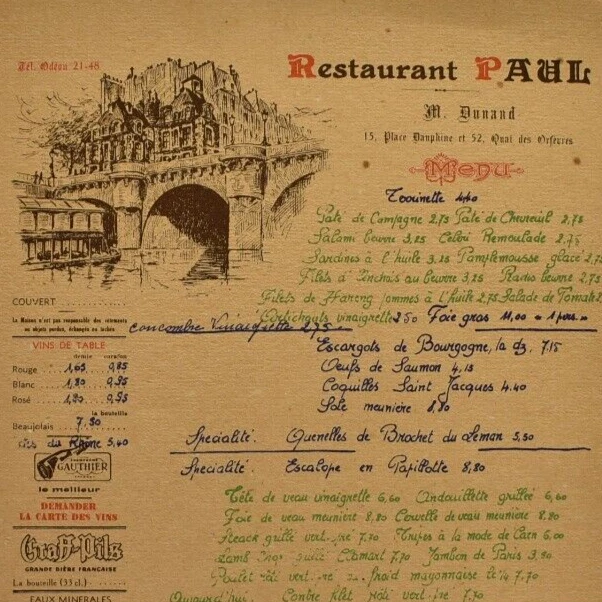 Tél. Odéon 21-48
Restaurant PAUL
M. Dunand
15, Place Dauphine et 52, Quai des Orfevres
Menu
4,40
Pate de Campagne 2,75 Pate de Chevreuil 2,75
Salami beurre 3,25 Céleri Remoulade 2,75
Sardines à l'huile 3,25 Pamplemousse glacé 2,75
Filets d'Anchois au beurre 3,25 Radis beurre 2,75
Filets de Hareng pommes à l'huile 2,75 Salade de Tomate 2,
COUVERT
Artichauts vinaigrette 2,50 Foie gras 11,00 1 pers.
La Maison n'est pas responsable des vêtements
ou objets perdus, échangés ou tachés
concombre Vinaigrette 2,75
VINS DE TABLE
Escargots de Bourgogne, la dz. 7.15
demie carafes
Rouge 1,65 0,85
Oeufs de Saumon 4,15
Blanc 1,80 0,95
Coquilles Saint Jacques 4.40
Rosé 1,80 0,95
Sole meunière 8,80
la bouteille
Beaujolais 7,50
du Rhône 5,40
Spécialité. Quenelles de Brochet du Leman 5,50
GAUTHIER
Spécialité. Escalope en Papillotte 8,80
le meilleur
DEMANDER
LA CARTE DES VINS
Tête de veau vinaigrette 6,60 Andouillette grillée 6,60
Foie de veau meuniere 8,80 Cervelle de veau meuniere 8,80
Steack grillé vert-pre 7,70 Tripes à la mode de Caen 6,00
Graff-Pils
GRANDE BIÈRE FRANÇAISE
Lamb Chop grillé Clamart 7,70 Jambon de Paris 3,80
La bouteille (33 cl.)
Poulet rôti vert-pre ou froid mayonnaise 7,70
EAUX MINERALES
Aujourd'hui. Contre filet rôti vert-pre 7,70